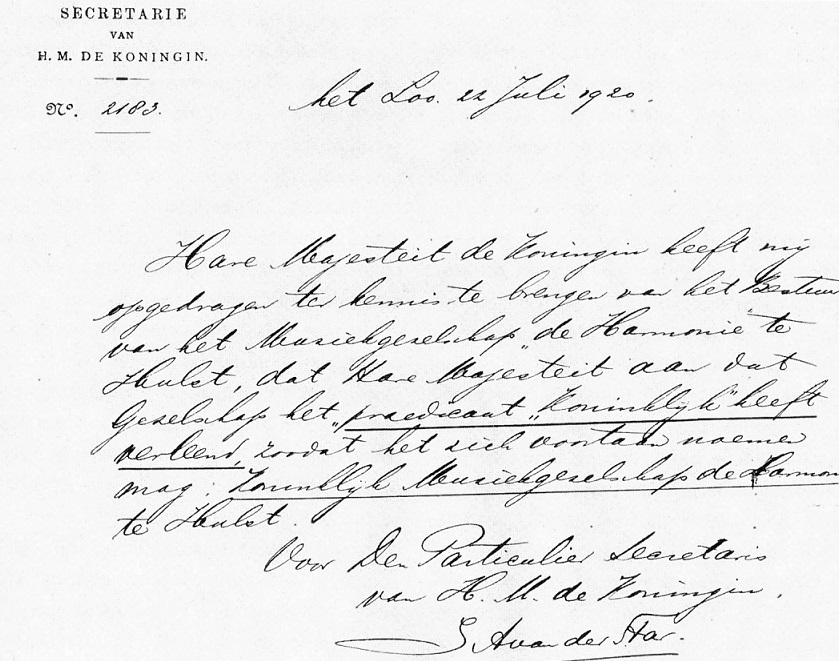 SECRETARIE
VAN
H. M. DE KONINGIN.
No. 2183.
het Loo. 22 Juli 1920.
Hare Majesteit de Koningin heeft mij
opgedragen ter kennis te brengen van het Bestuur
van het Muziekgezelschap „de Harmonie" te
Hulst, dat Hare Majesteit aan dat
Gezelschap het „praedicaat „Koninklijk" heeft
verleend, zoodat het zich voortaan noemen
mag: Koninklijk Muziekgezelschap de Harmon
te Hulst.
Voor Den Particulier Secretaris
van H. M. de Koningin.
van der